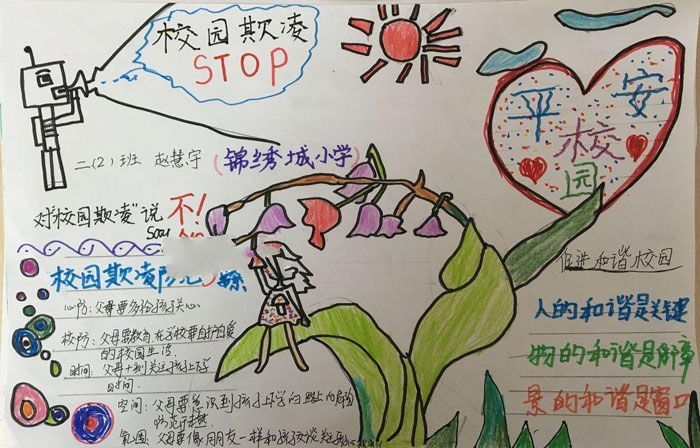 校园欺凌
STOP
平安
校
园
二(2)班 赵慧宇 (锦绣城小学)
对"校园欺凌"说 不!
促进和谐校园
校园欺凌防
心防:父母要多给孩子关心
人的和谐是关键
校防:父母要教育在学校要自护自爱
的校园生活
物的和谐是
时间:父母十刻关注孩子上下学
时间.
景的和谐是窗口
空间:父母要
氛围:父母要像朋友一样和孩子谈